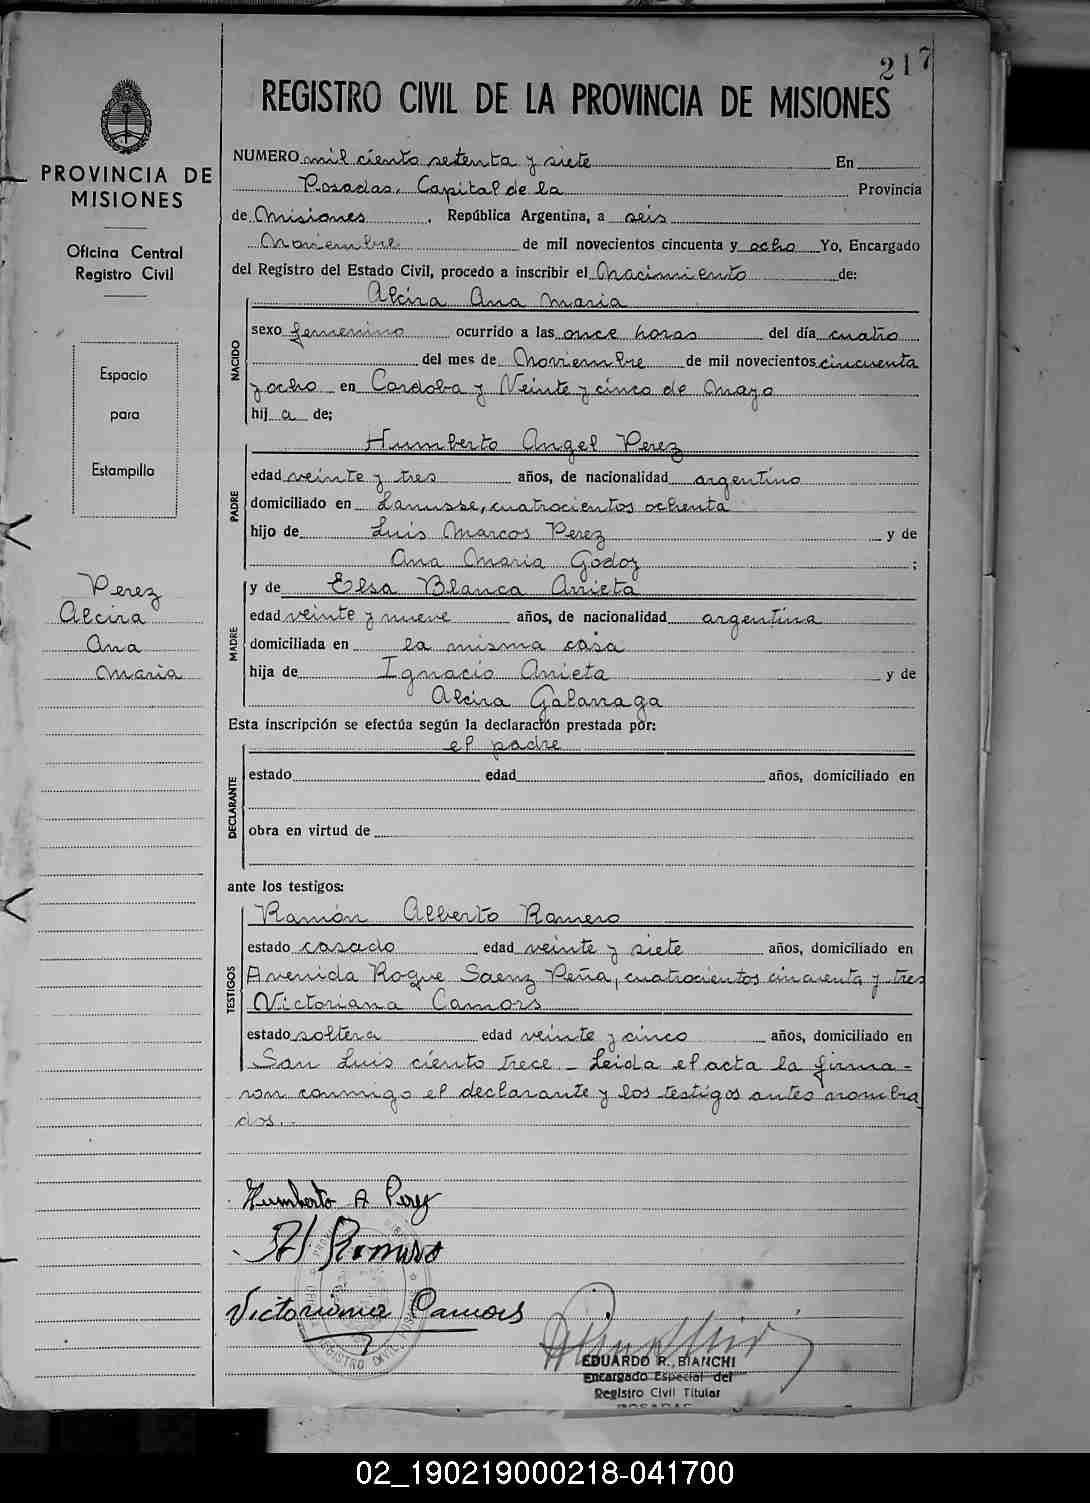 217
REGISTRO CIVIL DE LA PROVINCIA DE MISIONES
PROVINCIA DE
MISIONES
Oficina Central
Registro Civil
Espacio
para
Estampilla
Perez
Alcira
Ana
Maria
NUMERO mil ciento setenta y siete En
Posadas, Capital de la Provincia
de Misiones, República Argentina, a seis
Noviembre de mil novecientos cincuenta y ocho Yo, Encargado
del Registro del Estado Civil, procedo a inscribir el Nacimiento de:
Alcira Ana Maria
NACIDO
sexo femenino ocurrido a las once horas del día cuatro
del mes de Noviembre de mil novecientos cincuenta
y ocho en Cordoba y Veinte y cinco de Mayo
hij a de;
Humberto Angel Perez
PADRE
edad veinte y tres años, de nacionalidad argentino
domiciliado en Lanusse, cuatrocientos ochenta
hijo de Luis Marcos Perez y de
Ana Maria Godoy ;
y de Elsa Blanca Arrieta
MADRE
edad veinte y nueve años, de nacionalidad argentina
domiciliada en la misma casa
hija de Ignacio Arrieta y de
Alcira Galarraga
Esta inscripción se efectúa según la declaración prestada por:
el padre
DECLARANTE
estado edad años, domiciliado en
obra en virtud de
ante los testigos:
Ramón Alberto Romero
TESTIGOS
estado casado edad veinte y siete años, domiciliado en
Avenida Roque Saenz Peña, cuatrocientos cincuenta y tres
Victoriana Camors
estado soltera edad veinte y cinco años, domiciliado en
San Luis ciento trece - Leida el acta la firma-
ron conmigo el declarante y los testigos antes nombra
dos..
Humberto A Perez
Romero
Victoriana Camors
EDUARDO R. BIANCHI
Encargado Especial del
Registro Civil Titular
POSADAS
REGISTRO CIVIL
02_190219000218-041700